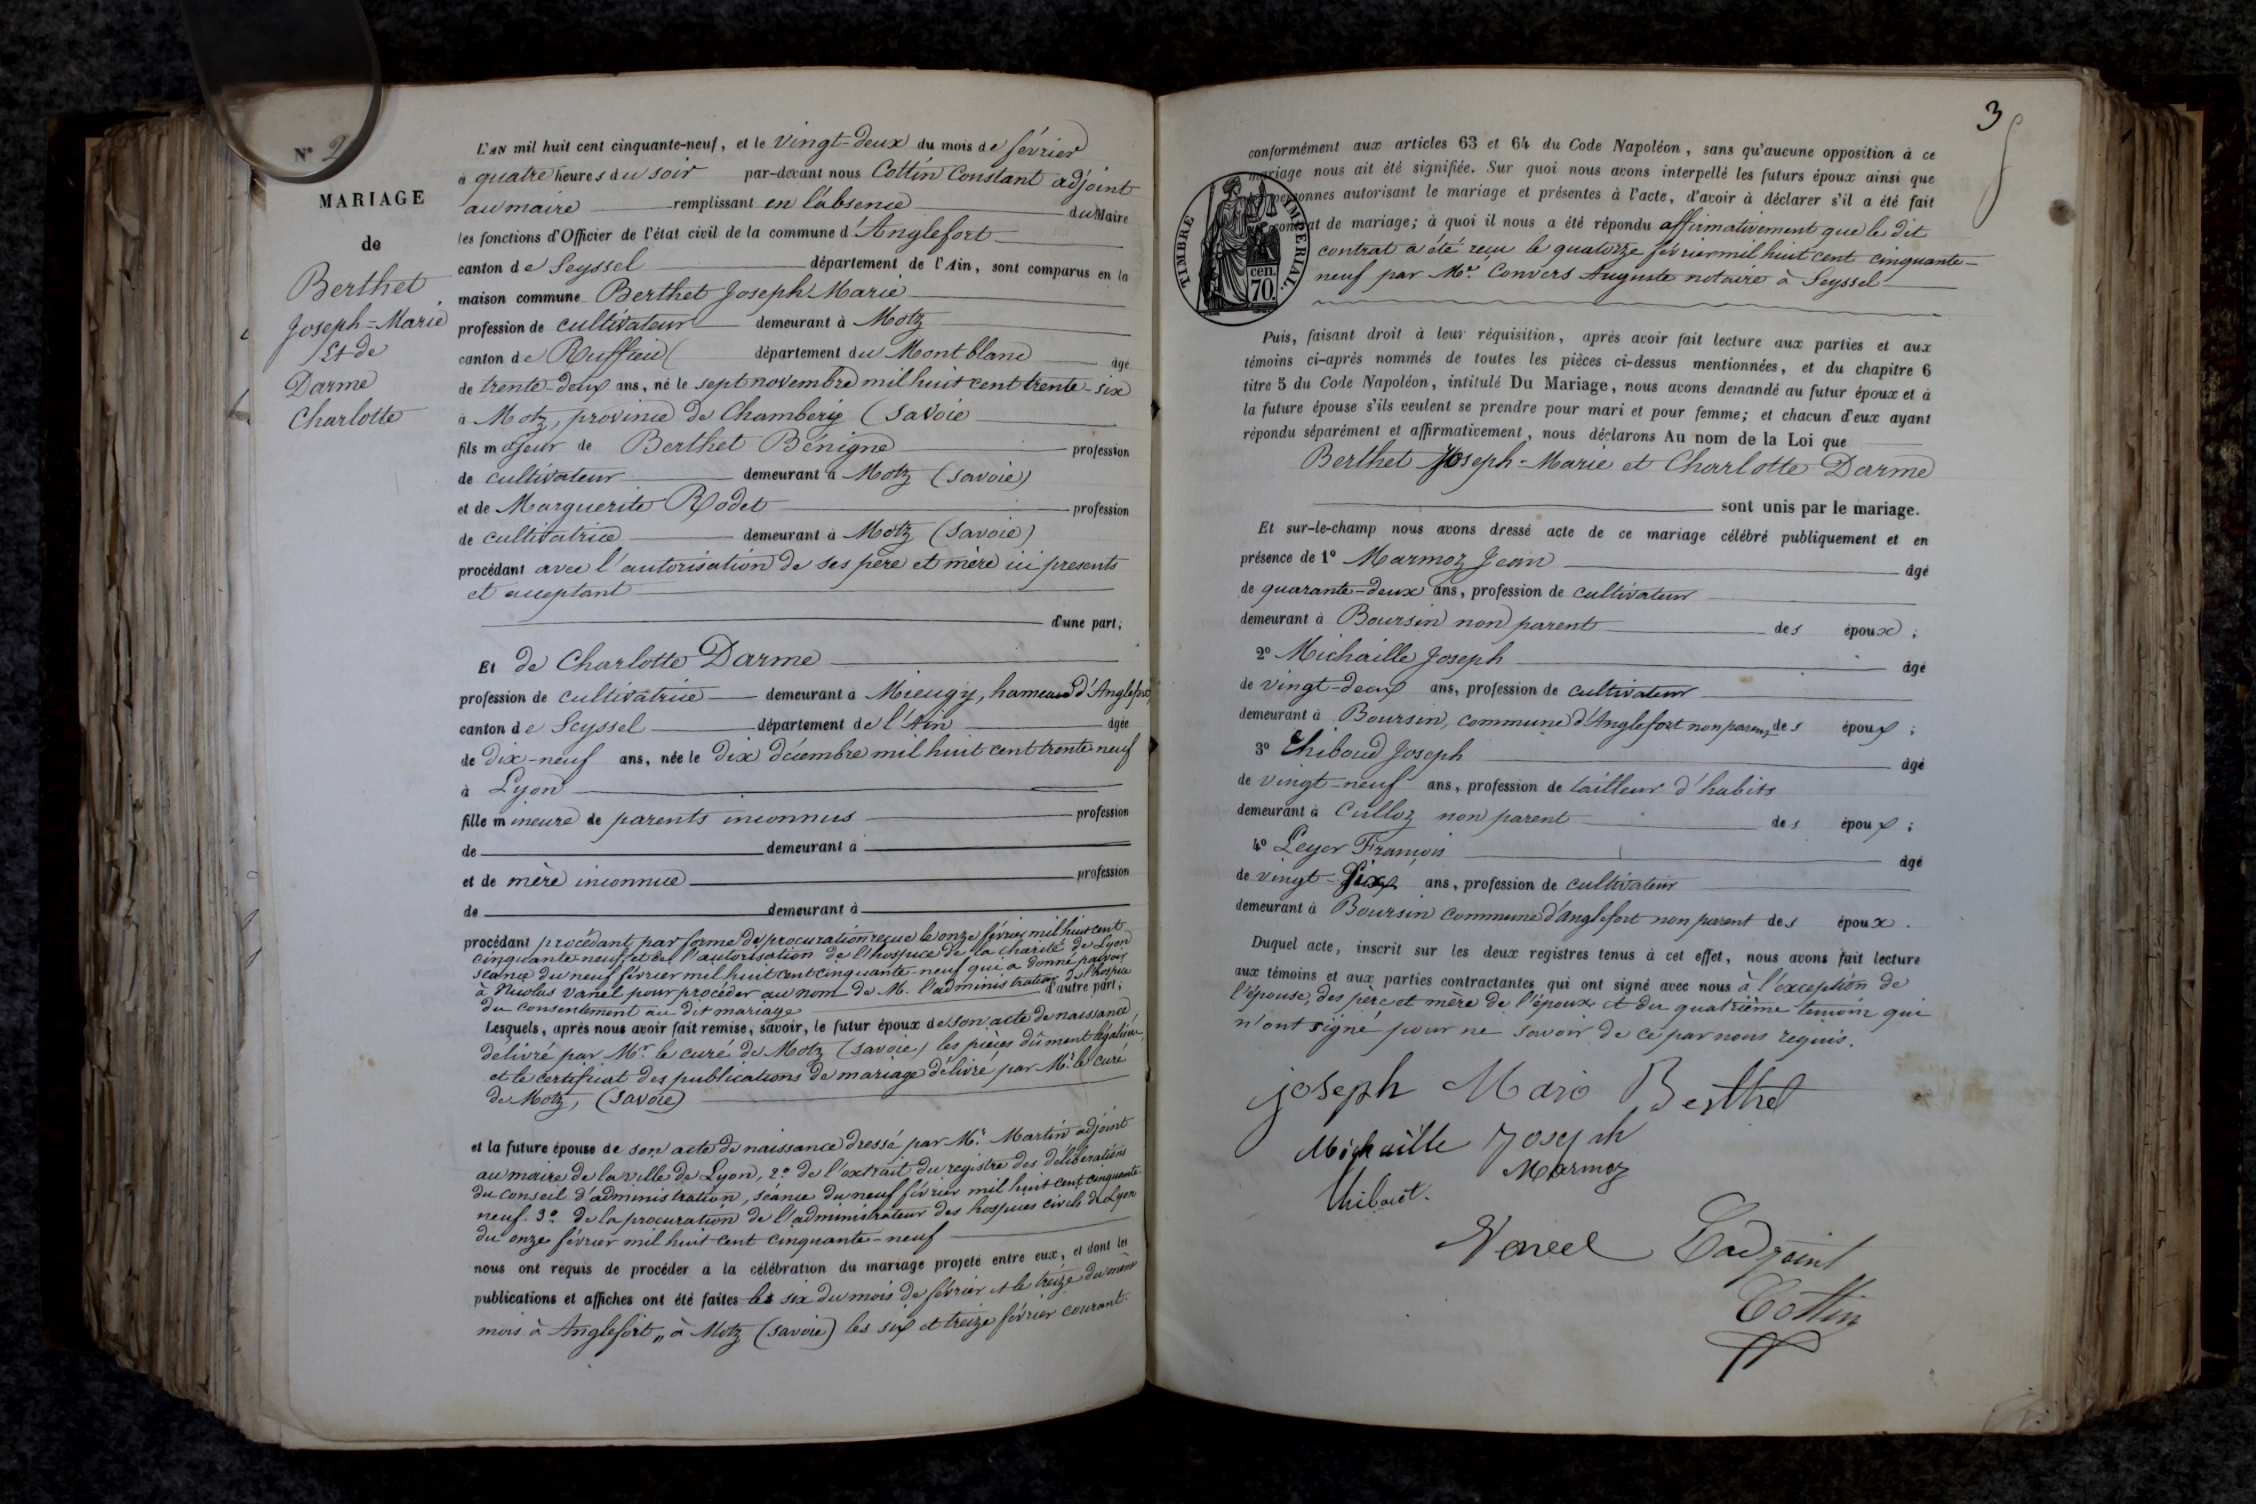 N° 2
MARIAGE
de
Berthet
Joseph=Marie
Et de
Darme
Charlotte
L'AN mil huit cent cinquante-neuf, et le vingt-deux du mois de février
à quatre heures du soir par-devant nous Cottin Constant adjoint
au maire remplissant en l'absence du Maire
les fonctions d'Officier de l'état civil de la commune d'Anglefort
canton de Seyssel département de l'Ain, sont comparus en la
maison commune Berthet Joseph-Marie
profession de cultivateur demeurant à Motz
canton de Ruffieu département du Montblanc âgé
de trente-deux ans, né le sept novembre mil huit cent trente-six
à Motz, province de Chambery (Savoie
fils majeur de Berthet Bénigne profession
de cultivateur demeurant à Motz (Savoie)
et de Marguerite Rodet profession
de cultivatrice demeurant à Motz (Savoie)
procédant avec l'autorisation de ses père et mère ici presents
et acceptant
d'une part;
Et de Charlotte Darme
profession de cultivatrice demeurant à Mieugy, hameau d'Anglefort
canton de Seyssel département de l'Ain âgée
de dix-neuf ans, née le dix décembre mil huit cent trente neuf
à Lyon
fille mineure de parents inconnus profession
de demeurant à
et de mère inconnue profession
de demeurant à
procédant procédant par forme de procuration reçue le onze février mil huit cent
cinquante neuf, et de l'autorisation de l'hospice de la charité de Lyon
séance du neuf février mil huit cent cinquante-neuf qui a donné pouvoir
à Nicolas Vanel pour procéder au nom de M. l'administrateur de l'hospice
du consentement au dit mariage d'autre part;
Lesquels, après nous avoir fait remise, savoir, le futur époux de son acte de naissance,
délivré par Mr. le curé de Motz (Savoie) les pièces dûment légalisées,
et le certificat des publications de mariage délivré par Mr. le curé
de Motz, (Savoie)
et la future épouse de son acte de naissance dressé par Mr. Martin adjoint
au maire de la ville de Lyon, 2.º de l'extrait du registre des délibérations
du conseil d'administration, séance du neuf février mil huit cent cinquante
neuf. 3º de la procuration de l'administrateur des hospices civils de Lyon
du onze février mil huit cent cinquante-neuf
nous ont requis de procéder à la célébration du mariage projeté entre eux, et dont les
publications et affiches ont été faites les six du mois de février et le treize du même
mois à Anglefort, à Motz (Savoie) les six et treize février courant.
3
conformément aux articles 63 et 64 du Code Napoléon, sans qu'aucune opposition à ce
mariage nous ait été signifiée. Sur quoi nous avons interpellé les futurs époux ainsi que
personnes autorisant le mariage et présentes à l'acte, d'avoir à déclarer s'il a été fait
contrat de mariage; à quoi il nous a été répondu affirmativement que le dit
contrat a été reçu le quatorze février mil huit cent cinquante-
neuf par Mr. Convers Auguste notaire à Seyssel
TIMBRE IMPÉRIAL.
70 cen.
Puis, faisant droit à leur réquisition, après avoir fait lecture aux parties et aux
témoins ci-après nommés de toutes les pièces ci-dessus mentionnées, et du chapitre 6
titre 5 du Code Napoléon, intitulé Du Mariage, nous avons demandé au futur époux et à
la future épouse s'ils veulent se prendre pour mari et pour femme; et chacun d'eux ayant
répondu séparément et affirmativement, nous déclarons Au nom de la Loi que
Berthet Joseph-Marie et Charlotte Darme
sont unis par le mariage.
Et sur-le-champ nous avons dressé acte de ce mariage célébré publiquement et en
présence de 1º Marmoz Jean âgé
de quarante-deux ans, profession de cultivateur
demeurant à Boursin non parent des époux;
2º Michaille Joseph âgé
de vingt-deux ans, profession de cultivateur
demeurant à Boursin, commune d'Anglefort non parent des époux;
3º Thiboud Joseph âgé
de vingt-neuf ans, profession de tailleur d'habits
demeurant à Culloz non parent des époux;
4º Leyer François âgé
de vingt-six ans, profession de cultivateur
demeurant à Boursin commune d'Anglefort non parent des époux.
Duquel acte, inscrit sur les deux registres tenus à cet effet, nous avons fait lecture
aux témoins et aux parties contractantes qui ont signé avec nous à l'exception de
l'épouse, des père et mère de l'époux et du quatrième temoin qui
n'ont signé pour ne savoir de ce par nous requis.
joseph Mario Berthet
Michaille Joseph
Marmoz
thiboud.
Vanel L'adjoint
Cottin